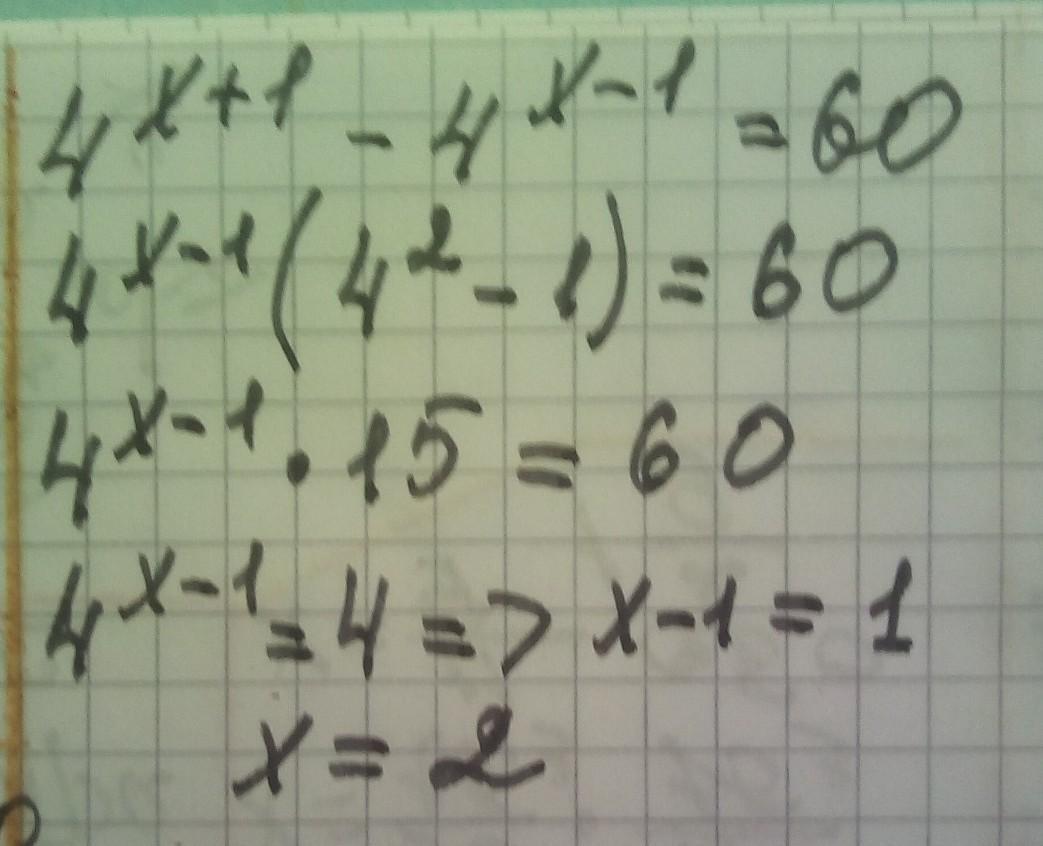 4^{x+1} - 4^{x-1} = 60
4^{x-1}(4^2 - 1) = 60
4^{x-1} · 15 = 60
4^{x-1} = 4 => x-1 = 1
x = 2